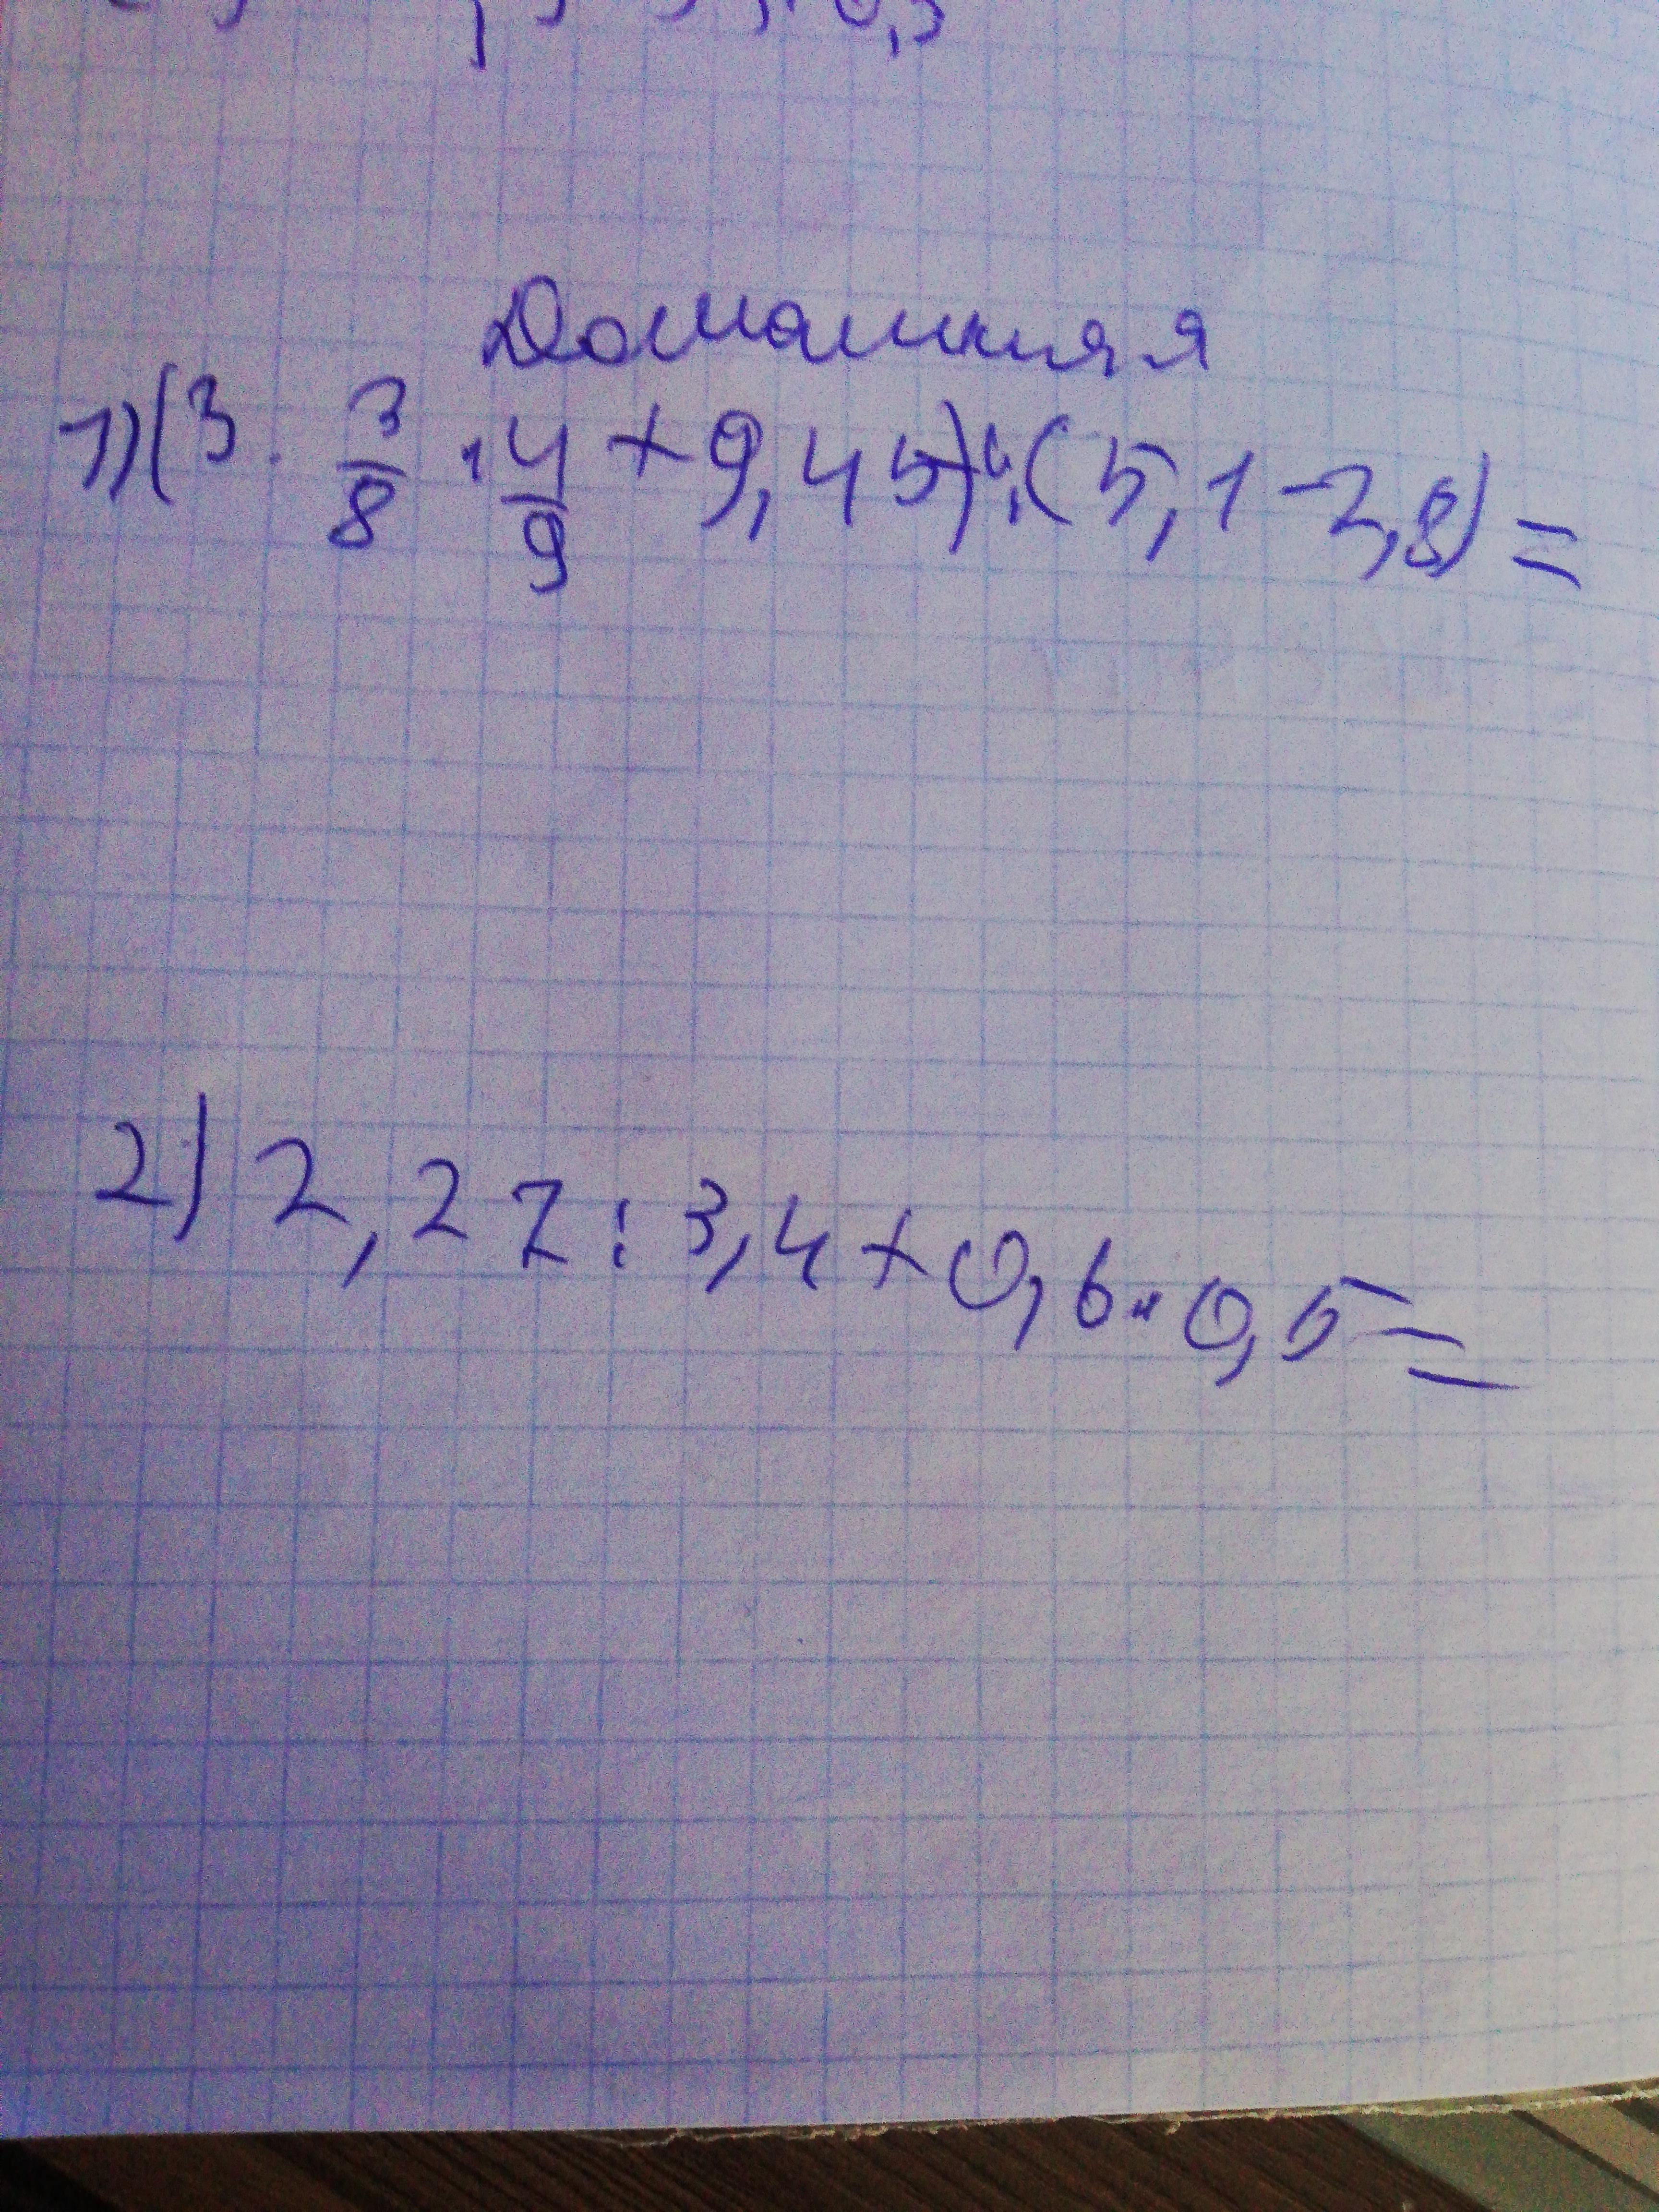 Домашняя
1) (3 · 3/8 · 4/9 + 9,45) : (5,1 - 2,8) =
2) 2,27 : 3,4 + 0,6 · 0,5 =